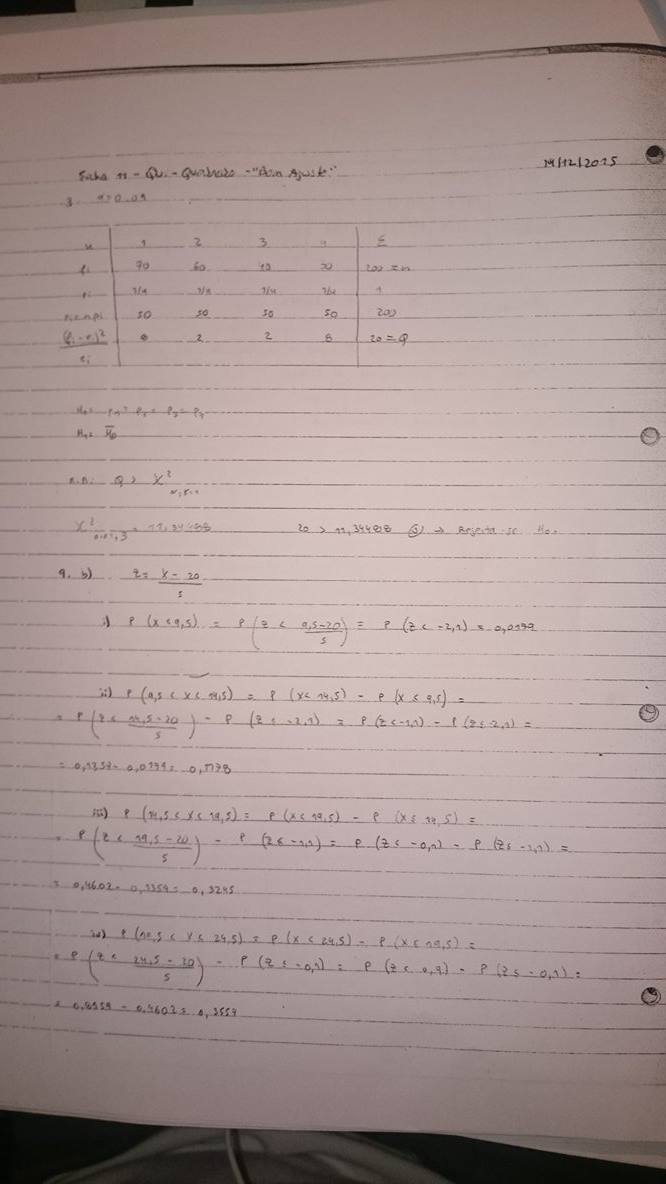 14/12/2015
Ficha 11 - Qui-Quadrado - "Bom Ajuste"
3.
x 1 2 3 4 Σ
fi 70 60 40 30 200 = n
pi 1/4 1/4 1/4 1/4 1
ei=npi 50 50 50 50 200
(fi - ei)² / ei 8 2 2 8 20 = Q
H0 = p1 = p2 = p3 = p4
H1 = H̅0
R.R.: Q > X²
X² 0.01, 3 = 11,34488 20 > 11,34488 → Rejeita-se H0.
4. b) Z = x - 20 / 5
i) P (x < 9,5) = P (Z < 9,5-20 / 5) = P (Z < -2,1) = 0,0179
ii) P (9,5 < x < 14,5) = P (x < 14,5) - P (x ≤ 9,5) =
= P (Z < 14,5-20 / 5) - P (Z ≤ -2,1) = P (Z < -1,1) - P (Z ≤ -2,1) =
= 0,1357 - 0,0179 = 0,1178
iii) P (14,5 < x < 19,5) = P (x < 19,5) - P (x ≤ 14,5) =
= P (Z < 19,5-20 / 5) - P (Z ≤ -1,1) = P (Z ≤ -0,1) - P (Z ≤ -1,1) =
= 0,4602 - 0,1357 = 0,3245
iv) P (19,5 < x < 24,5) = P (x < 24,5) - P (x ≤ 19,5) =
= P (Z < 24,5-20 / 5) - P (Z ≤ -0,1) = P (Z < 0,9) - P (Z ≤ -0,1) =
= 0,8159 - 0,4602 = 0,3557